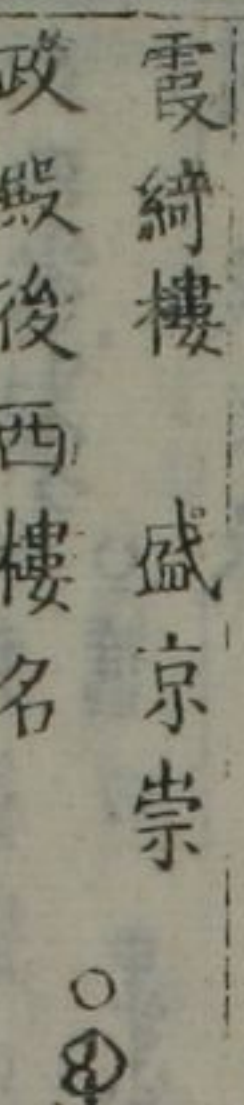 霞綺樓　盛京崇
政殿後西樓名
○